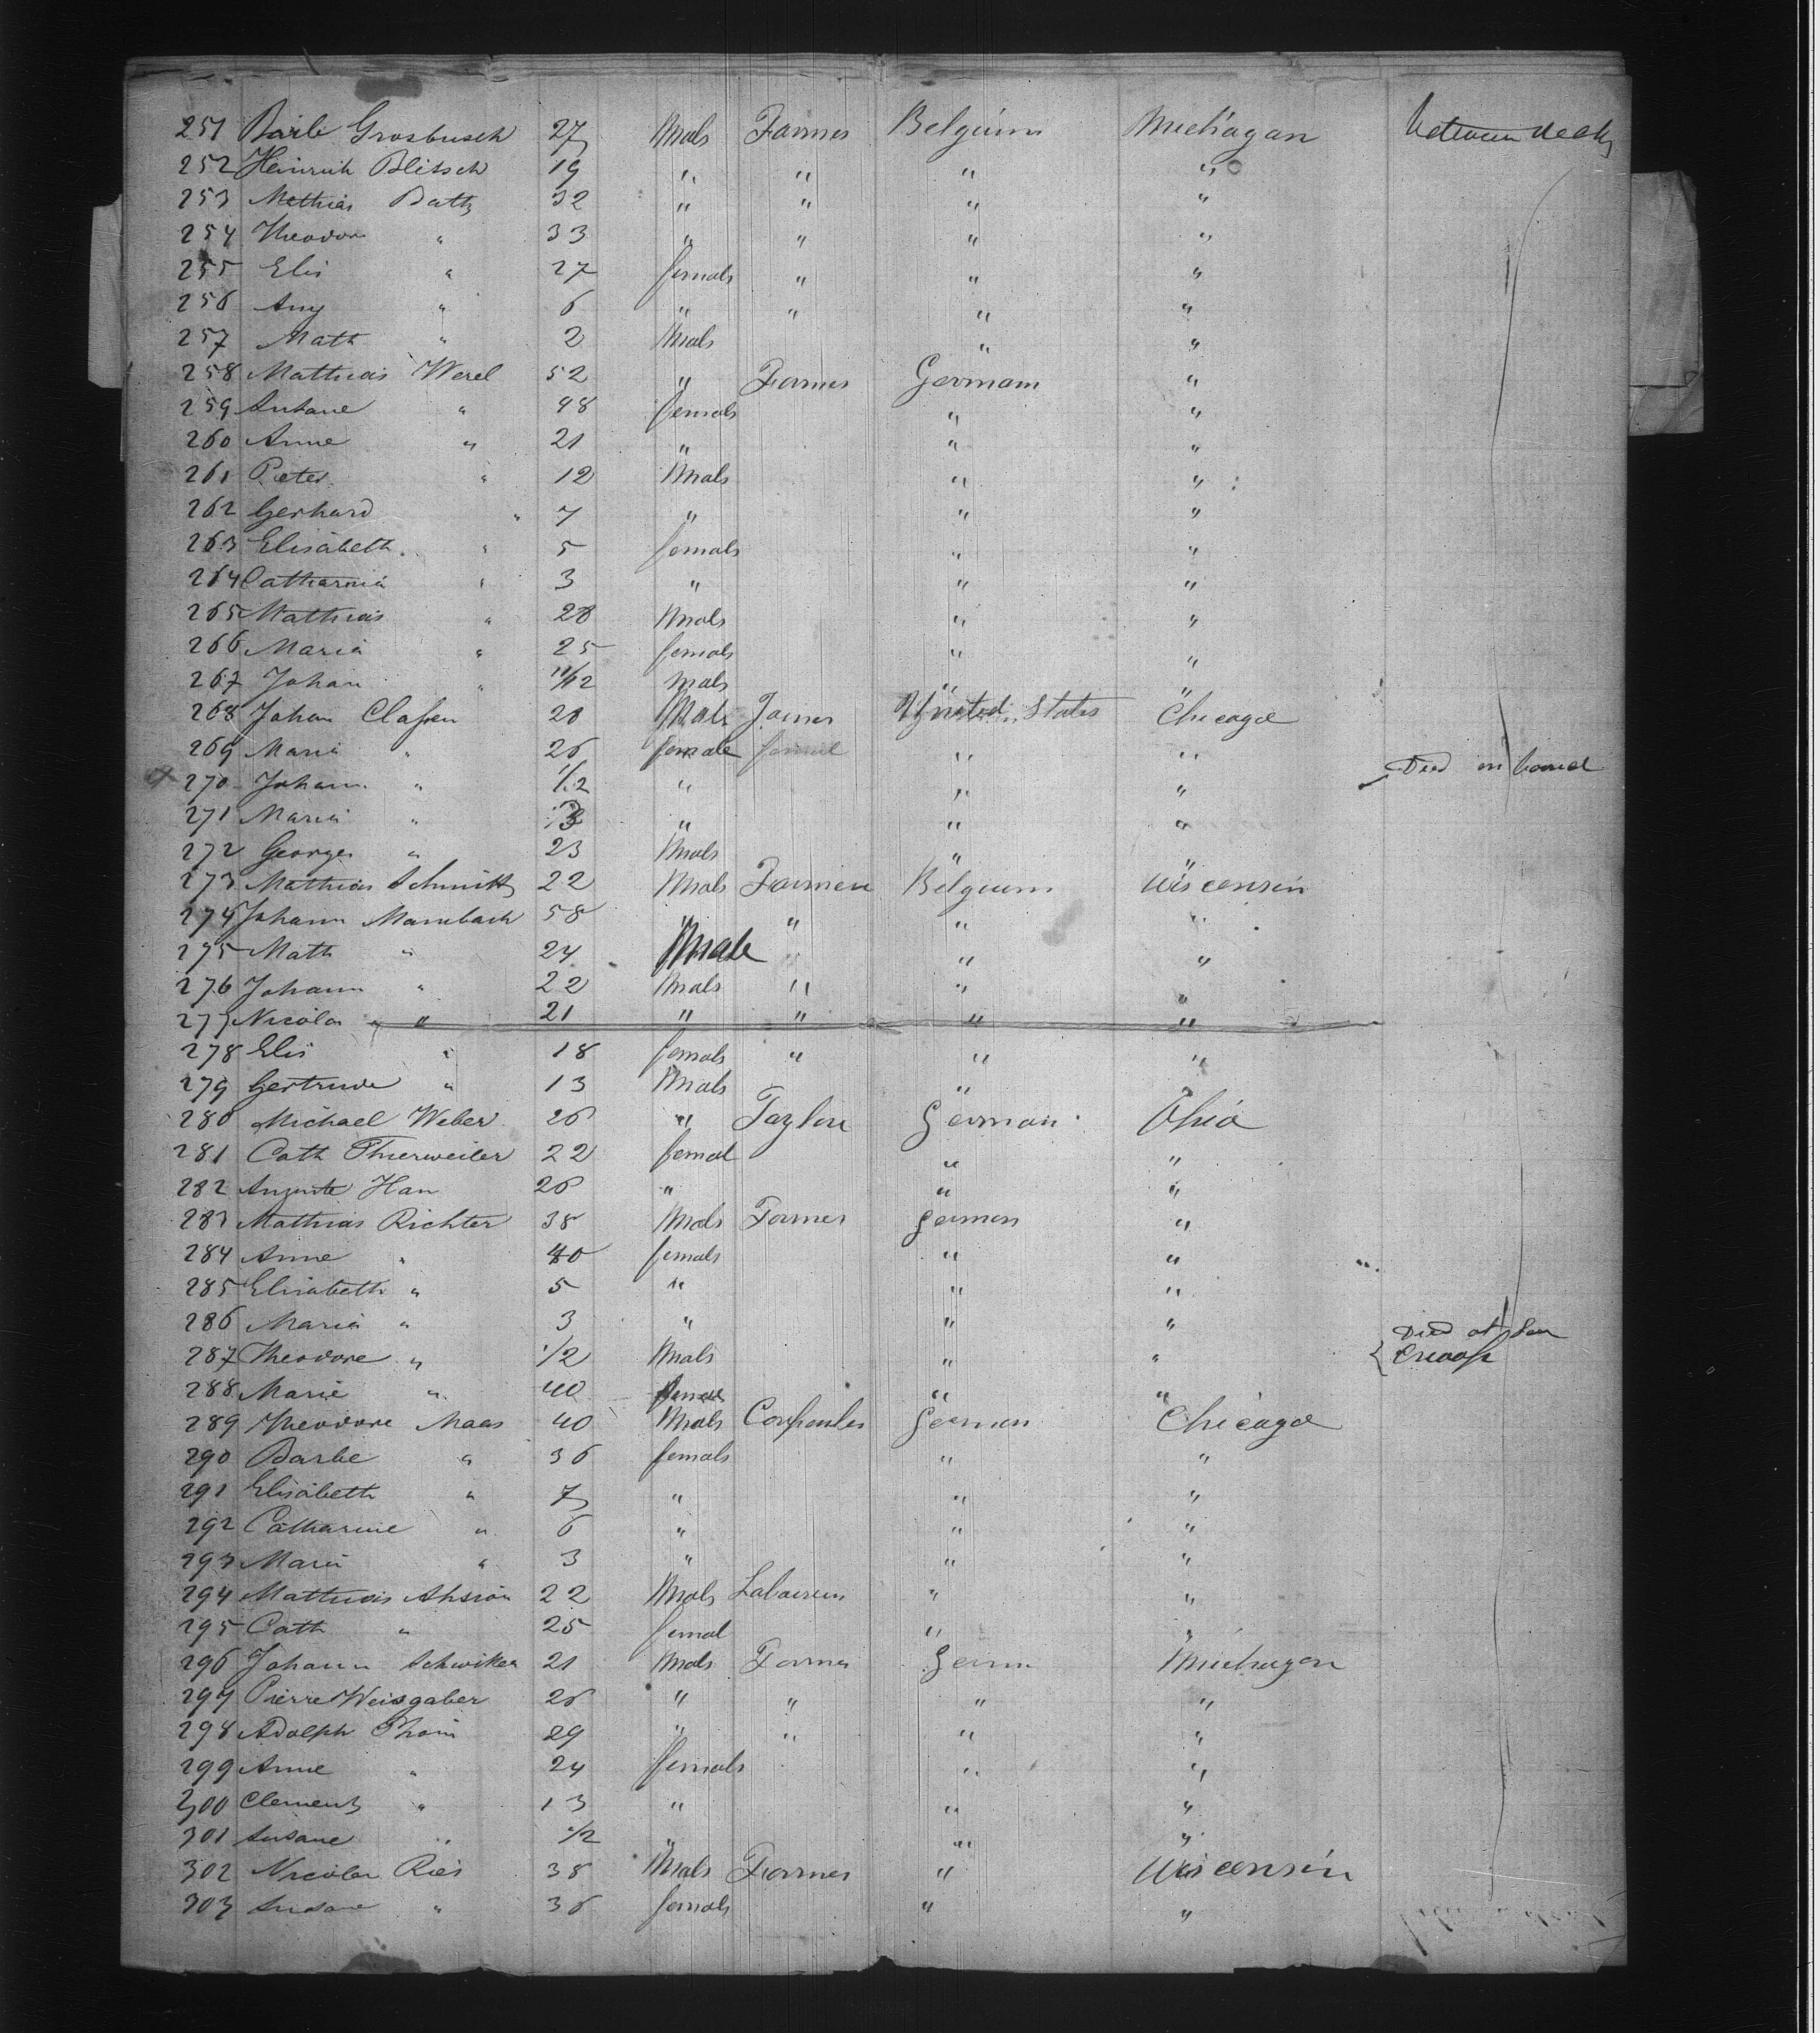 251 Barb Grosbusch 27 Male Farmer Belgium Michagan Between decks
252 Heinrich Blitsch 19 " " " "
253 Mathias Batty 32 " " " "
254 Theodor " 33 " " " "
255 Elis " 27 female " " "
256 Any " 6 " " " "
257 Math " 2 Male " "
258 Mathias Werel 52 " Farmer German "
259 Susane " 48 female " "
260 Anne " 21 " " "
261 Peter " 12 Male " "
262 Gerhard " 7 " " "
263 Elisabeth " 5 female " "
264 Catharina " 3 " " "
265 Mathias " 28 Male " "
266 Maria " 25 female " "
267 Johan " 11/12 male " "
268 Johan Classen 28 Male Farmer United States Chicago
269 Maria " 26 female " "
270 Johann " 1/12 " " " Died on board
271 Maria " 3 " " "
272 Georges " 23 Male " "
273 Mathias Schmitz 22 Male Farmer Belgium Wisconsin
274 Johann Mambach 58 " " " "
275 Math " 24 Male " " "
276 Johann " 22 Male " " "
277 Nicolas " 21 " " " "
278 Elis " 18 female " " "
279 Gertrude " 13 Male "
280 Michael Weber 26 " Taylor German Ohio
281 Cath Thierweiler 22 femal " "
282 Auguste Han 26 " " "
283 Mathias Richter 38 Male Farmer German "
284 Anne " 40 female " "
285 Elisabeth " 5 " " "
286 Maria " 3 " " " Died at Sea
287 Theodore " 1/2 Male " " Croup
288 Marie " 40 female " "
289 Theodore Maas 40 Male Carpenter German Chicago
290 Barbe " 36 female " "
291 Elisabeth " 7 " " "
292 Catharine " 6 " " "
293 Maria " 3 " " "
294 Mathias 22 Male " "
295 Cath " 25 femal " "
296 Johann Schwiker 21 Male Farmer Germ Michagan
297 Pierre Weisgaber 26 " " " "
298 Adolph Thom 29 " " " "
299 Anne " 24 female " "
300 Clement " 13 " " "
301 Susane " 1/2 " " "
302 Nicolas Ries 38 Male Farmer " Wisconsin
303 Susane " 36 female " "